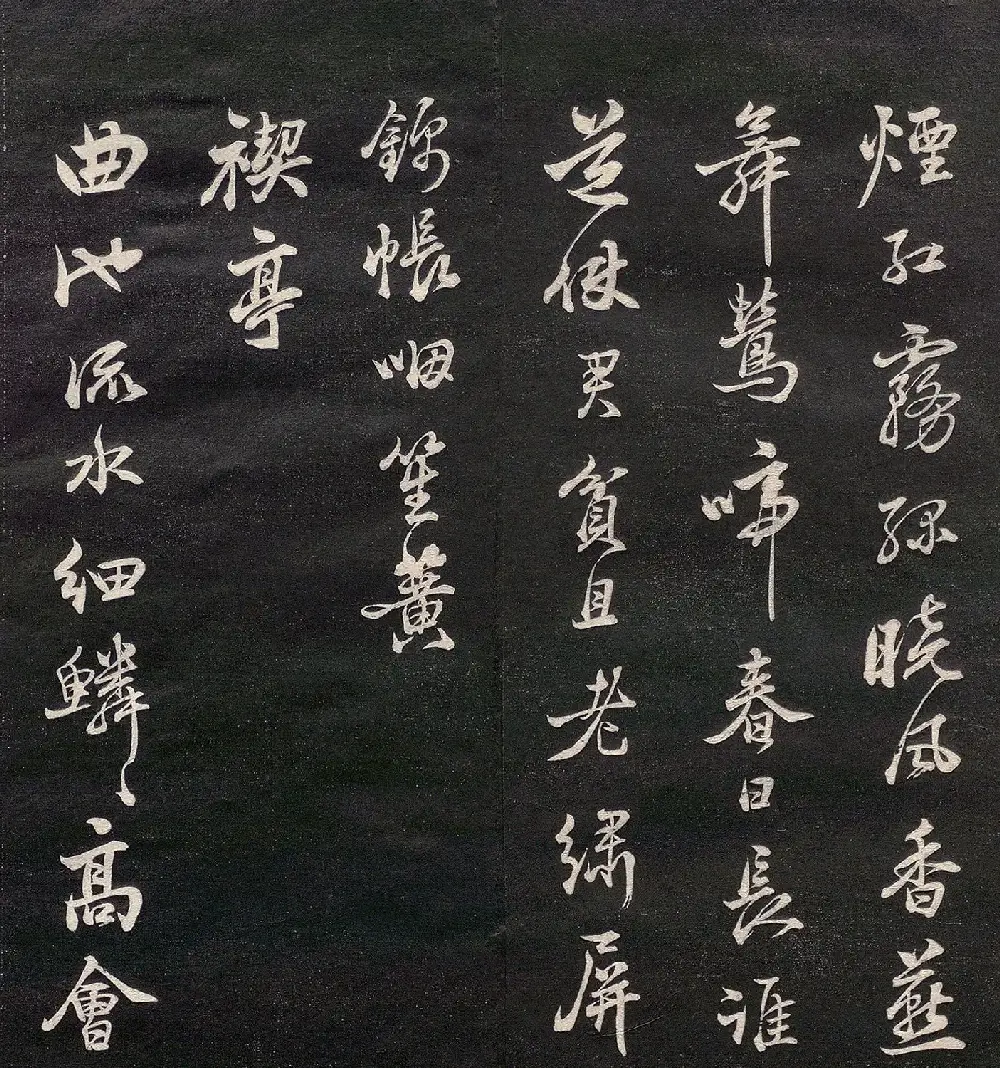 煙紅霧綠曉風香燕
舞鶯啼春日長誰
道僦君貧且老繡屏
錦帳咽笙簧
禊亭
曲池流水細鱗鱗高會